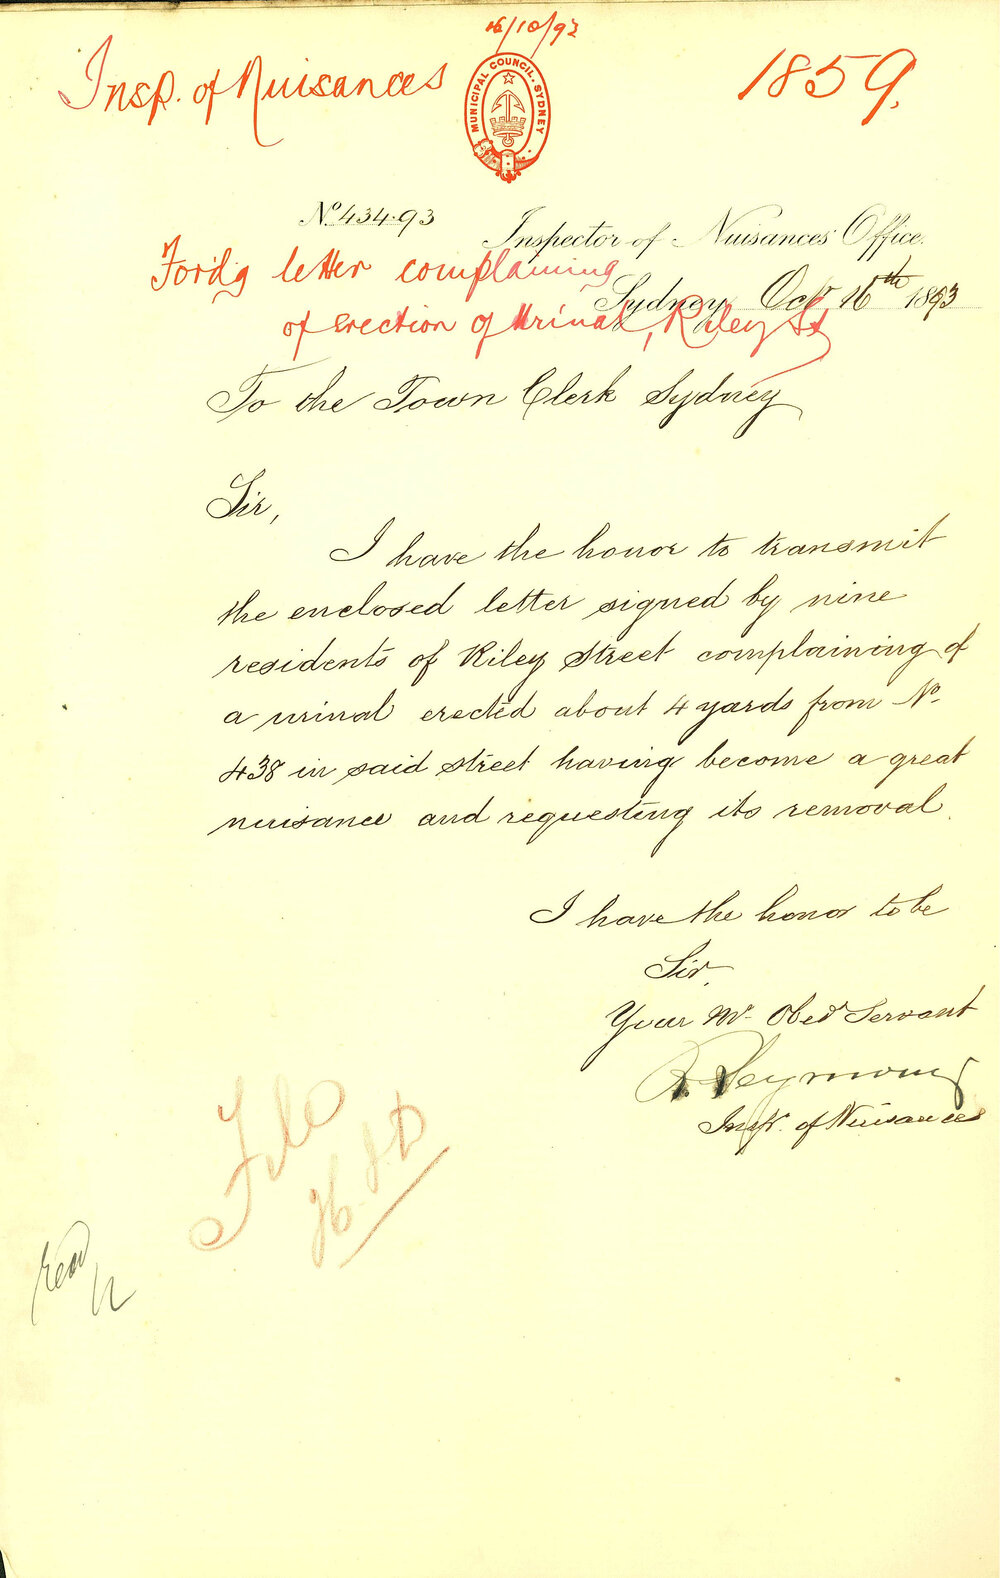 16/10/93
Insp. of Nuisances
MUNICIPAL COUNCIL. SYDNEY
1859.
No. 434.93
Inspector of Nuisances Office.
Ford'g letter complaining
Sydney Oct 16th 1893
of erection of Urinal, Riley St
To the Town Clerk Sydney
Sir,
I have the honor to transmit
the enclosed letter signed by nine
residents of Riley Street complaining of
a urinal erected about 4 yards from No.
438 in said street having become a great
nuisance and requesting its removal.
I have the honor to be
Sir,
Your Mt. Obed Servant
R. Seymour
Insp. of Nuisances
File
read